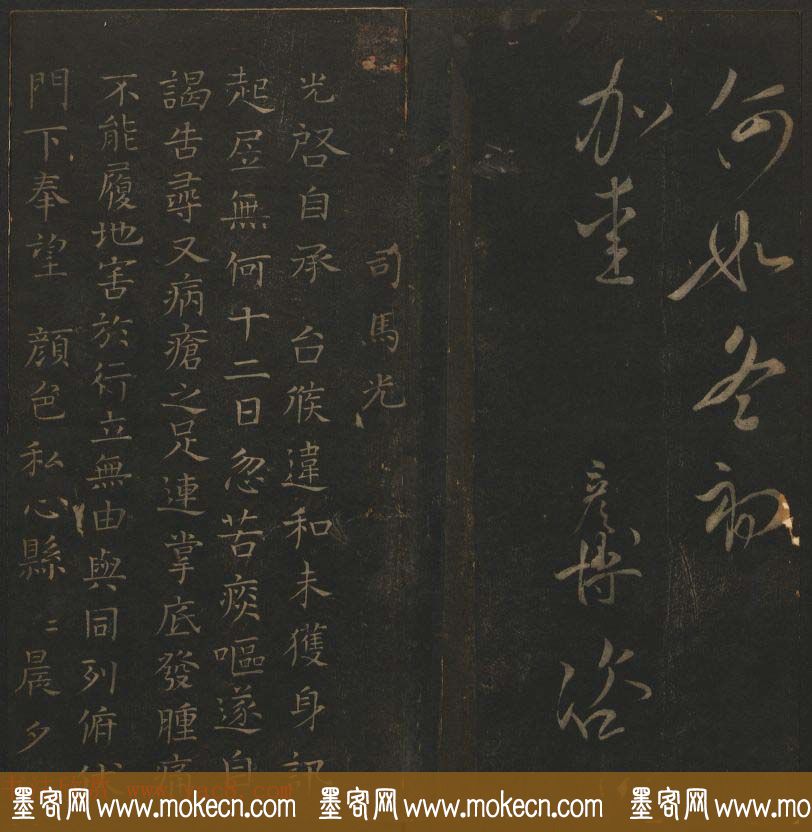 何如冬初
加重
彦博咨
司馬光
光啓自承 台候違和未獲身訊
起居無何十二日忽苦痰嘔遂自
謁告尋又病瘡之足連掌底發腫痛
不能履地害於行立無由與同列俯伏
門下奉望 顏色私心縣〻晨夕
墨客网 www.mokecn.com 墨客网 www.mokecn.com 墨客网 www.mokecn.com